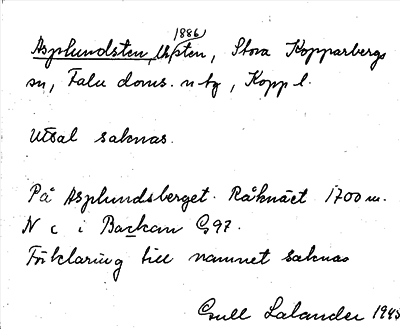 1886
Asplundsten, Sksten, Stora Kopparbergs
sn, Falu doms. n tg, Kopp l.
Uttal saknas.
På Asplundsberget. Råknäet 1700 m.
N c i Backan G 97.
Förklaring till namnet saknas
Gull Lalander 1945